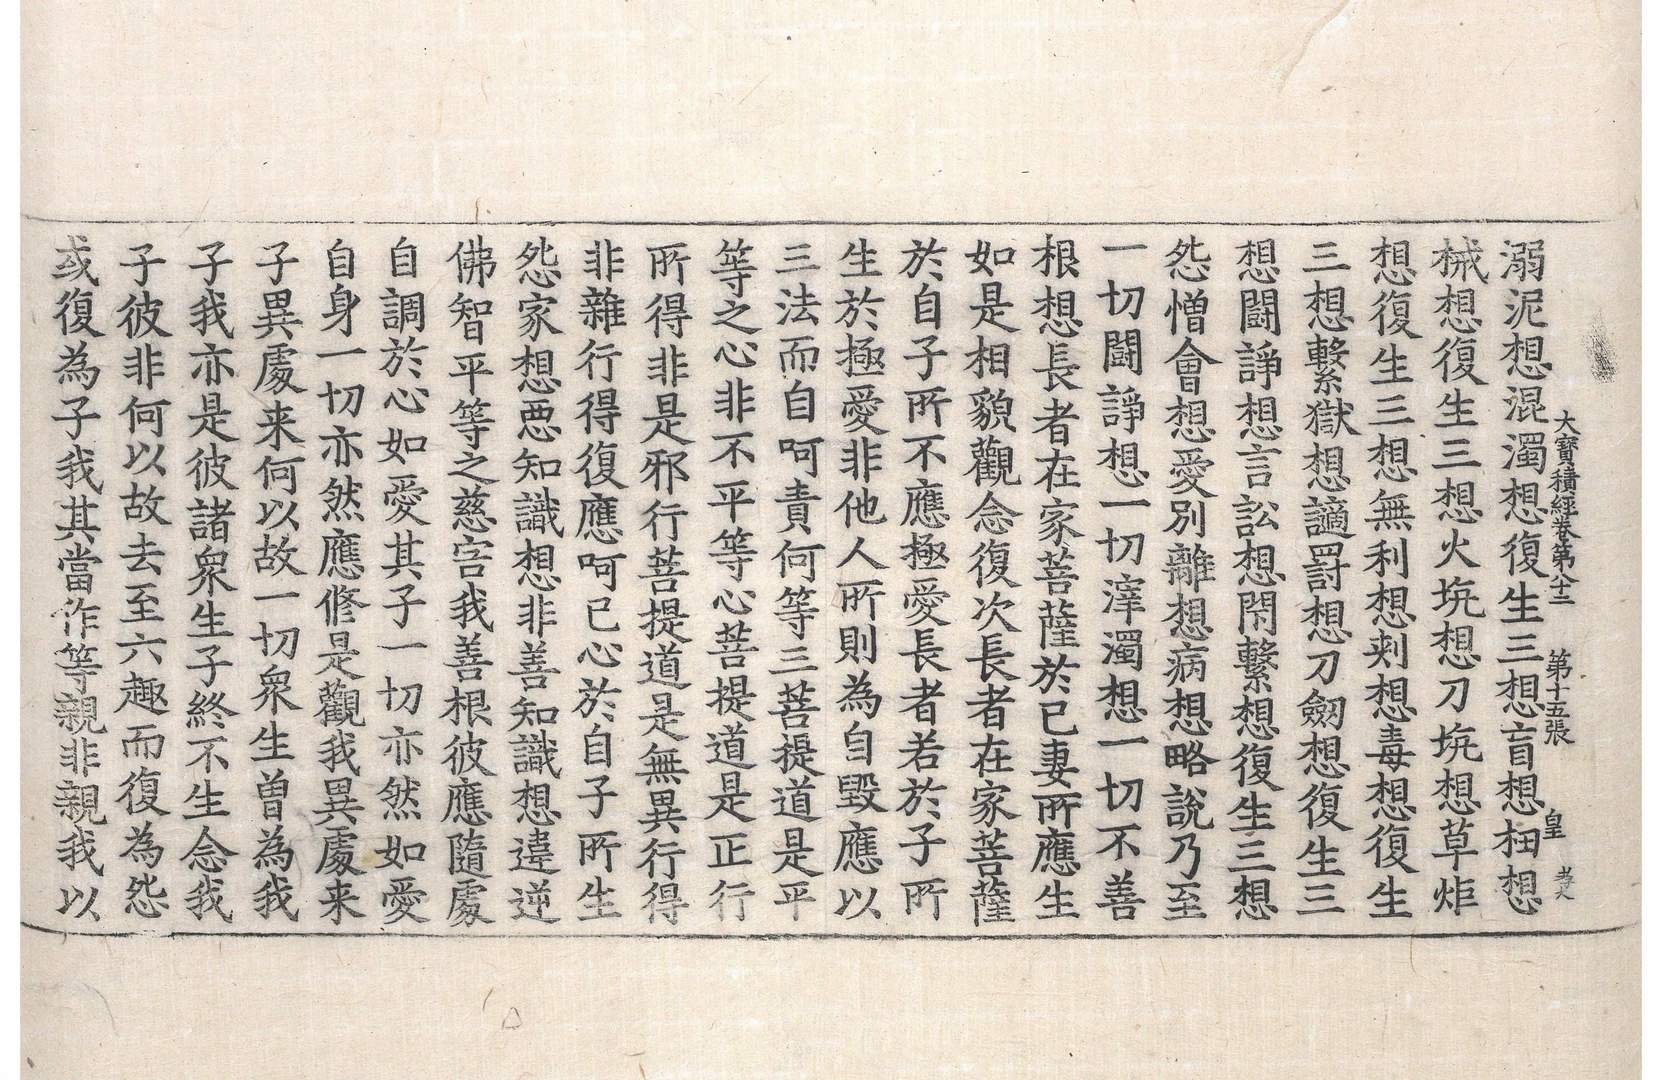 大寶積經卷第八十二 第十五張 皇
溺泥想混濁想復生三想盲想杻想
械想復生三想火坑想刀坑想草炬
想復生三想無利想刾想毒想復生
三想繫獄想謫罸想刀劒想復生三
想鬪諍想言訟想閇繫想復生三想
怨憎會想愛別離想病想略說乃至
一切鬪諍想一切滓濁想一切不善
根想長者在家菩薩於已妻所應生
如是相貌觀念復次長者在家菩薩
於自子所不應極愛長者若於子所
生於極愛非他人所則為自毀應以
三法而自呵責何等三菩提道是平
等之心非不平等心菩提道是正行
所得非是邪行菩提道是無異行得
非雜行得復應呵已心於自子所生
怨家想惡知識想非善知識想違逆
佛智平等之慈害我善根彼應隨處
自調於心如愛其子一切亦然如愛
自身一切亦然應修是觀我異處来
子異處来何以故一切衆生曾為我
子我亦是彼諸衆生子終不生念我
子彼非何以故去至六趣而復為怨
或復為子我其當作等親非親我以